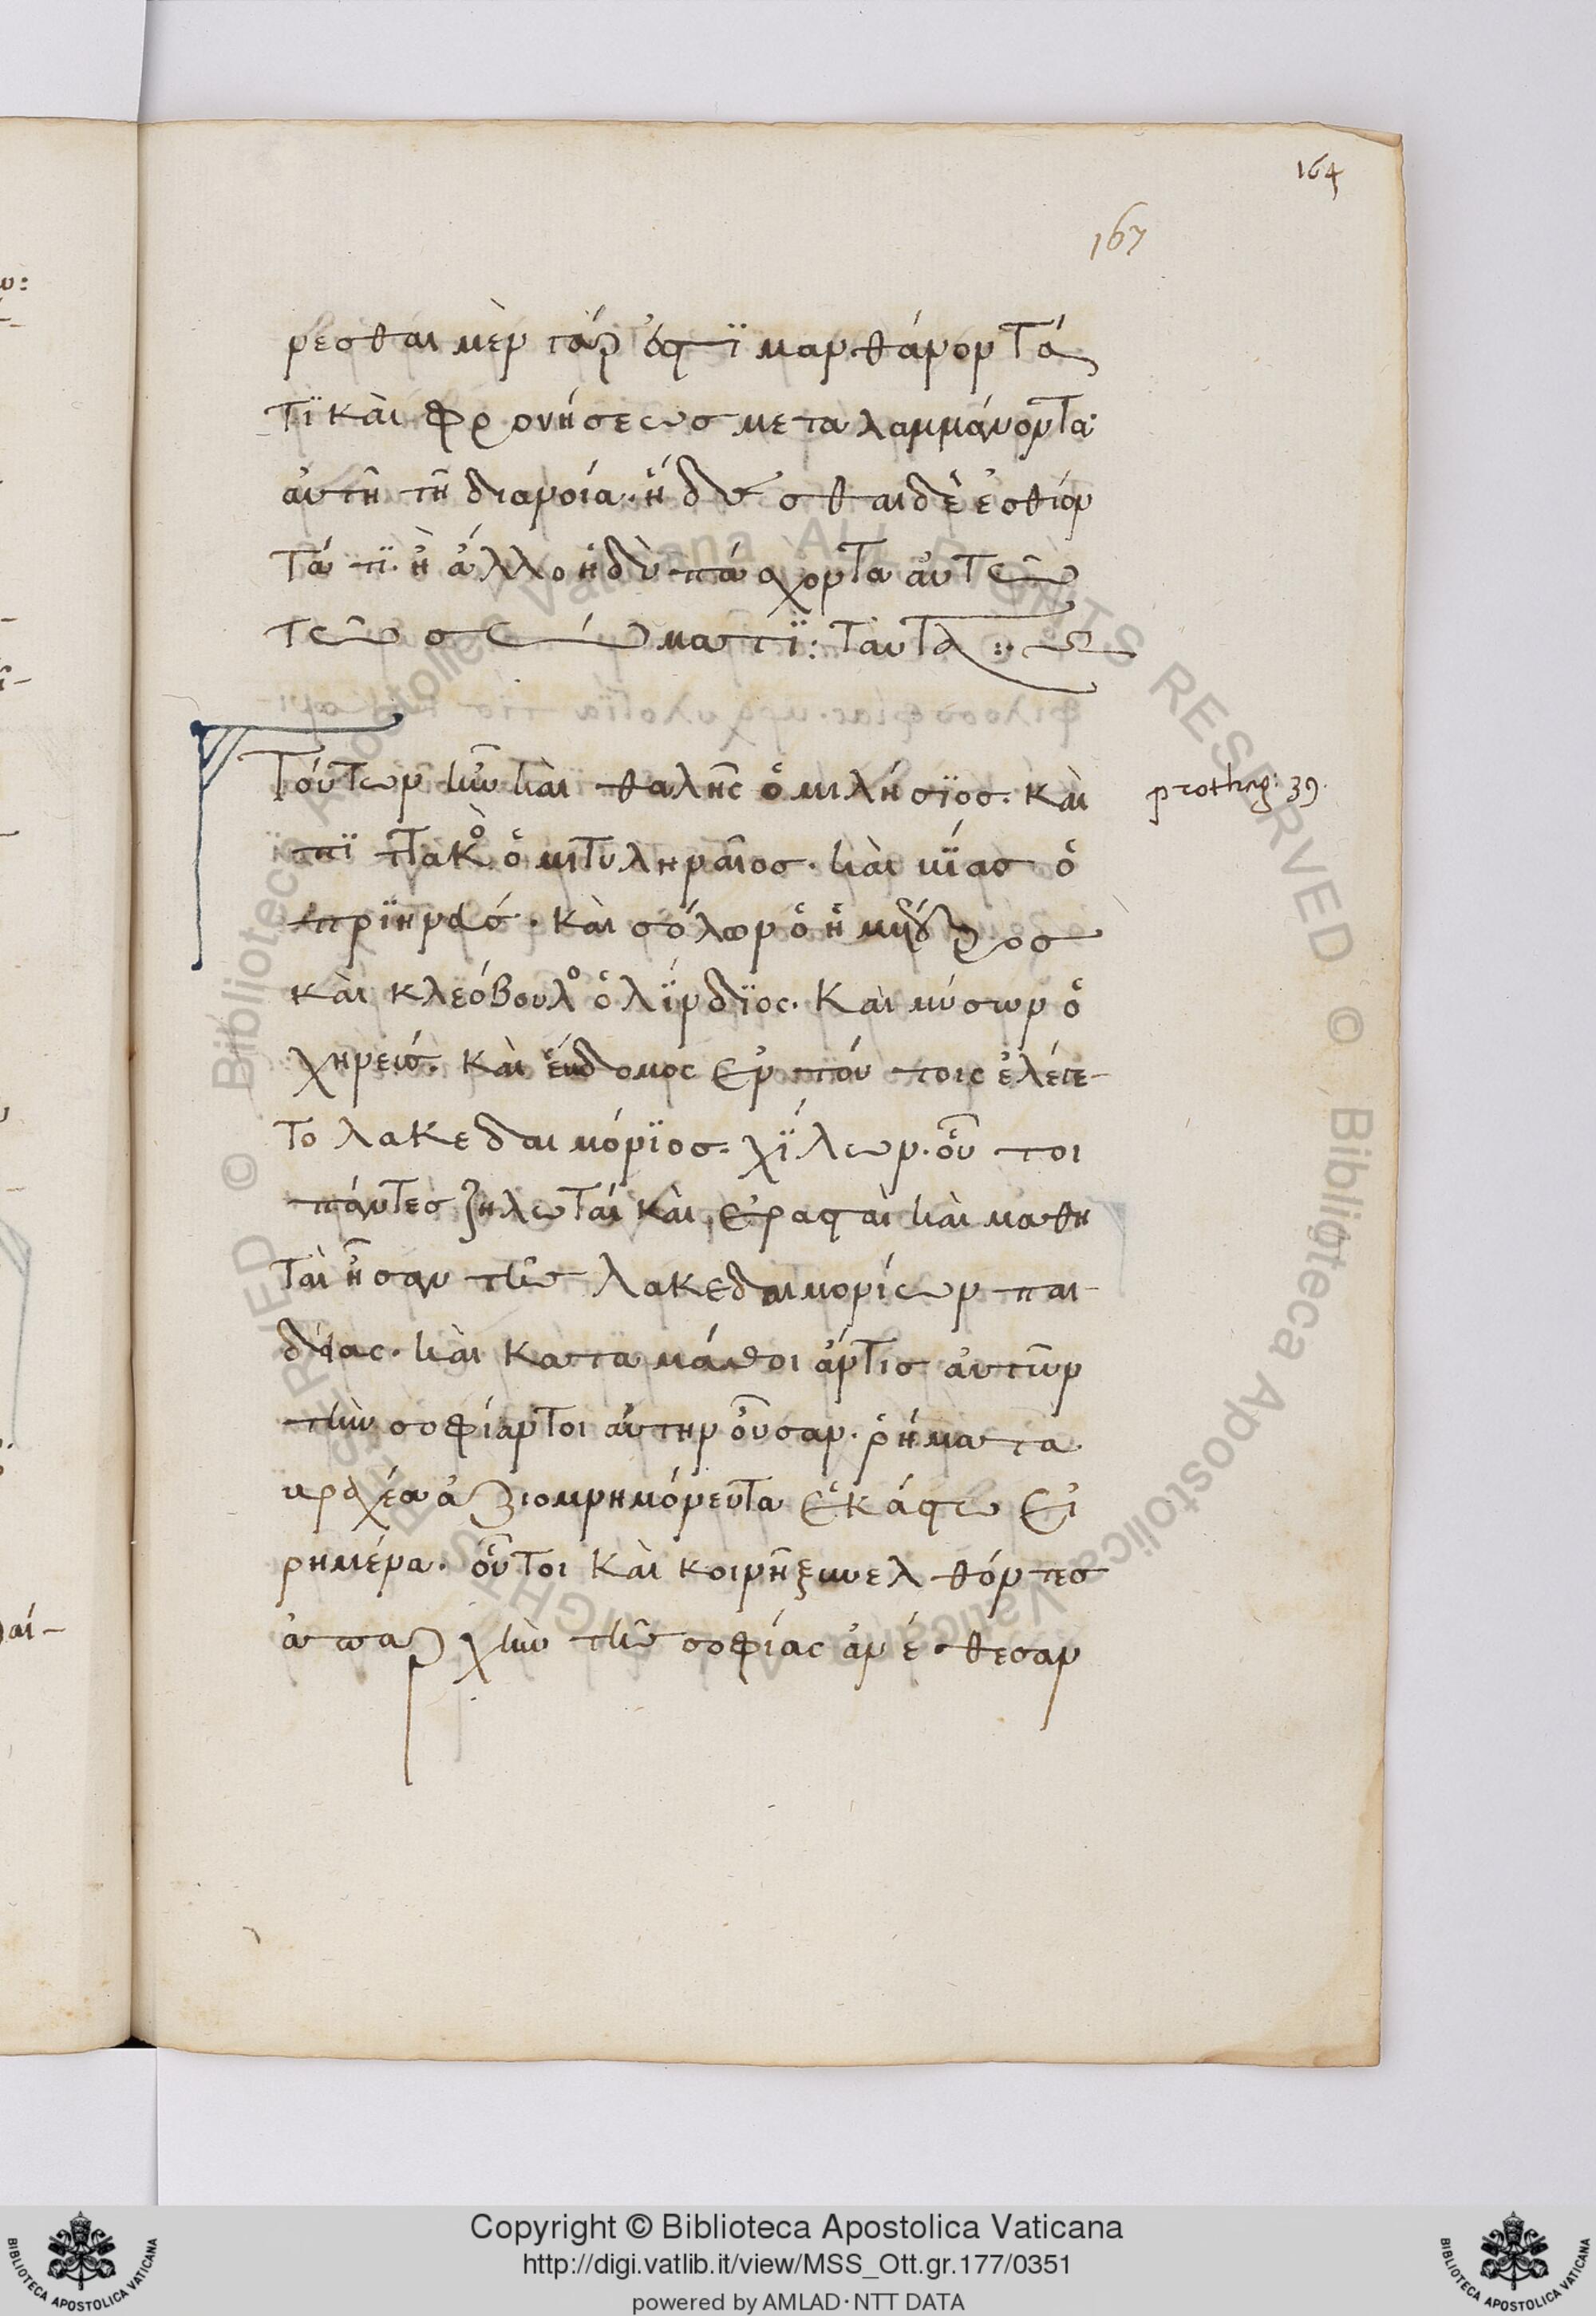 164
167
νεσθαι μὲν γάρ ἐστϊ μανθάνοντά
τϊ καὶ φρονήσεως μεταλαμβάνοντα
αὐτῆ τῆ διανοία. ἥδεσθαι δὲ ἐσθίον
τά τϊ. ἢ ἄλλο ἡδὺ πάσχοντα αὐτῶ
τῶ σώματϊ: ταῦτα :~
Τούτων ἦν καὶ θαλῆς ὁ μιλήσϊος. καὶ
πϊττακὸς ὁ μιτυληναῖος. καὶ βίας ὁ
πρϊηνεύς. καὶ σόλων ὁ ἡμέτερος
καὶ κλεόβουλος ὁ λίνδϊος. καὶ μύσων ὁ
χηνεύς. καὶ ἕβδομος ἐν τούτοις ἐλέγε-
το λακεδαιμόνϊος. χίλων. οὗτοι
πάντες ζηλωταί καὶ ἐρασταὶ καὶ μαθη
ταὶ ἦσαν τῆς λακεδαιμονίων παι-
δείας. καὶ καταμάθοι ἄν τις αὐτῶν
τὴν σοφίαν τοιαύτην οὖσαν. ῥήματα
βραχέα ἀξιομνημόνευτα ἑκάστω εἰ
ρημένα. οὗτοι καὶ κοινῆ ξυνελθόντες
ἀπαρχὴν τῆς σοφίας ἀνέθεσαν
prothag: 39.
Copyright © Biblioteca Apostolica Vaticana
http://digi.vatlib.it/view/MSS_Ott.gr.177/0351
powered by AMLAD·NTT DATA